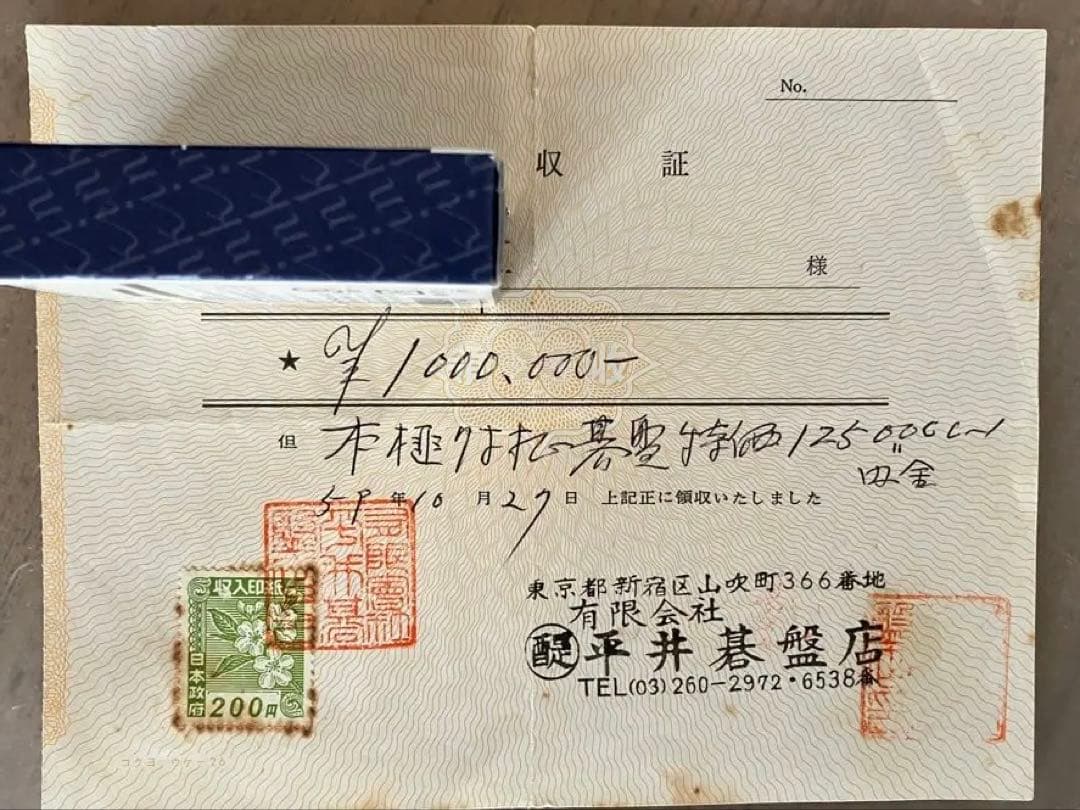 No.
収 証
様
★ ¥1000,000-
但 本榧 碁盤 特価 125
59年10月27日 上記正に領収いたしました
収入印紙
日本政府
200円
東京都新宿区山吹町366番地
有限会社
醍 平井碁盤店
TEL(03)260-2972・6538番
コクヨ ウケ-76